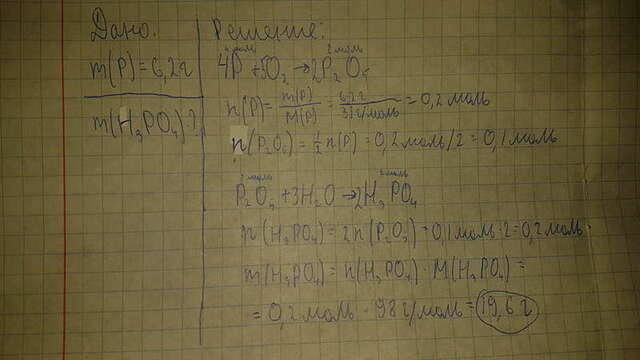 Дано:
m(P)=6,2г
m(H₃PO₄)?
Решение:
4моль 2моль
4P+5O₂→2P₂O₅
n(P)=m(P)/M(P)=6,2г/31г/моль=0,2моль
n(P₂O₅)=1/2n(P)=0,2моль/2=0,1моль
P₂O₅+3H₂O→2H₃PO₄
n(H₃PO₄)=2n(P₂O₅)=0,1моль·2=0,2моль.
m(H₃PO₄)=n(H₃PO₄)·M(H₃PO₄)=
=0,2моль·98г/моль=19,6г